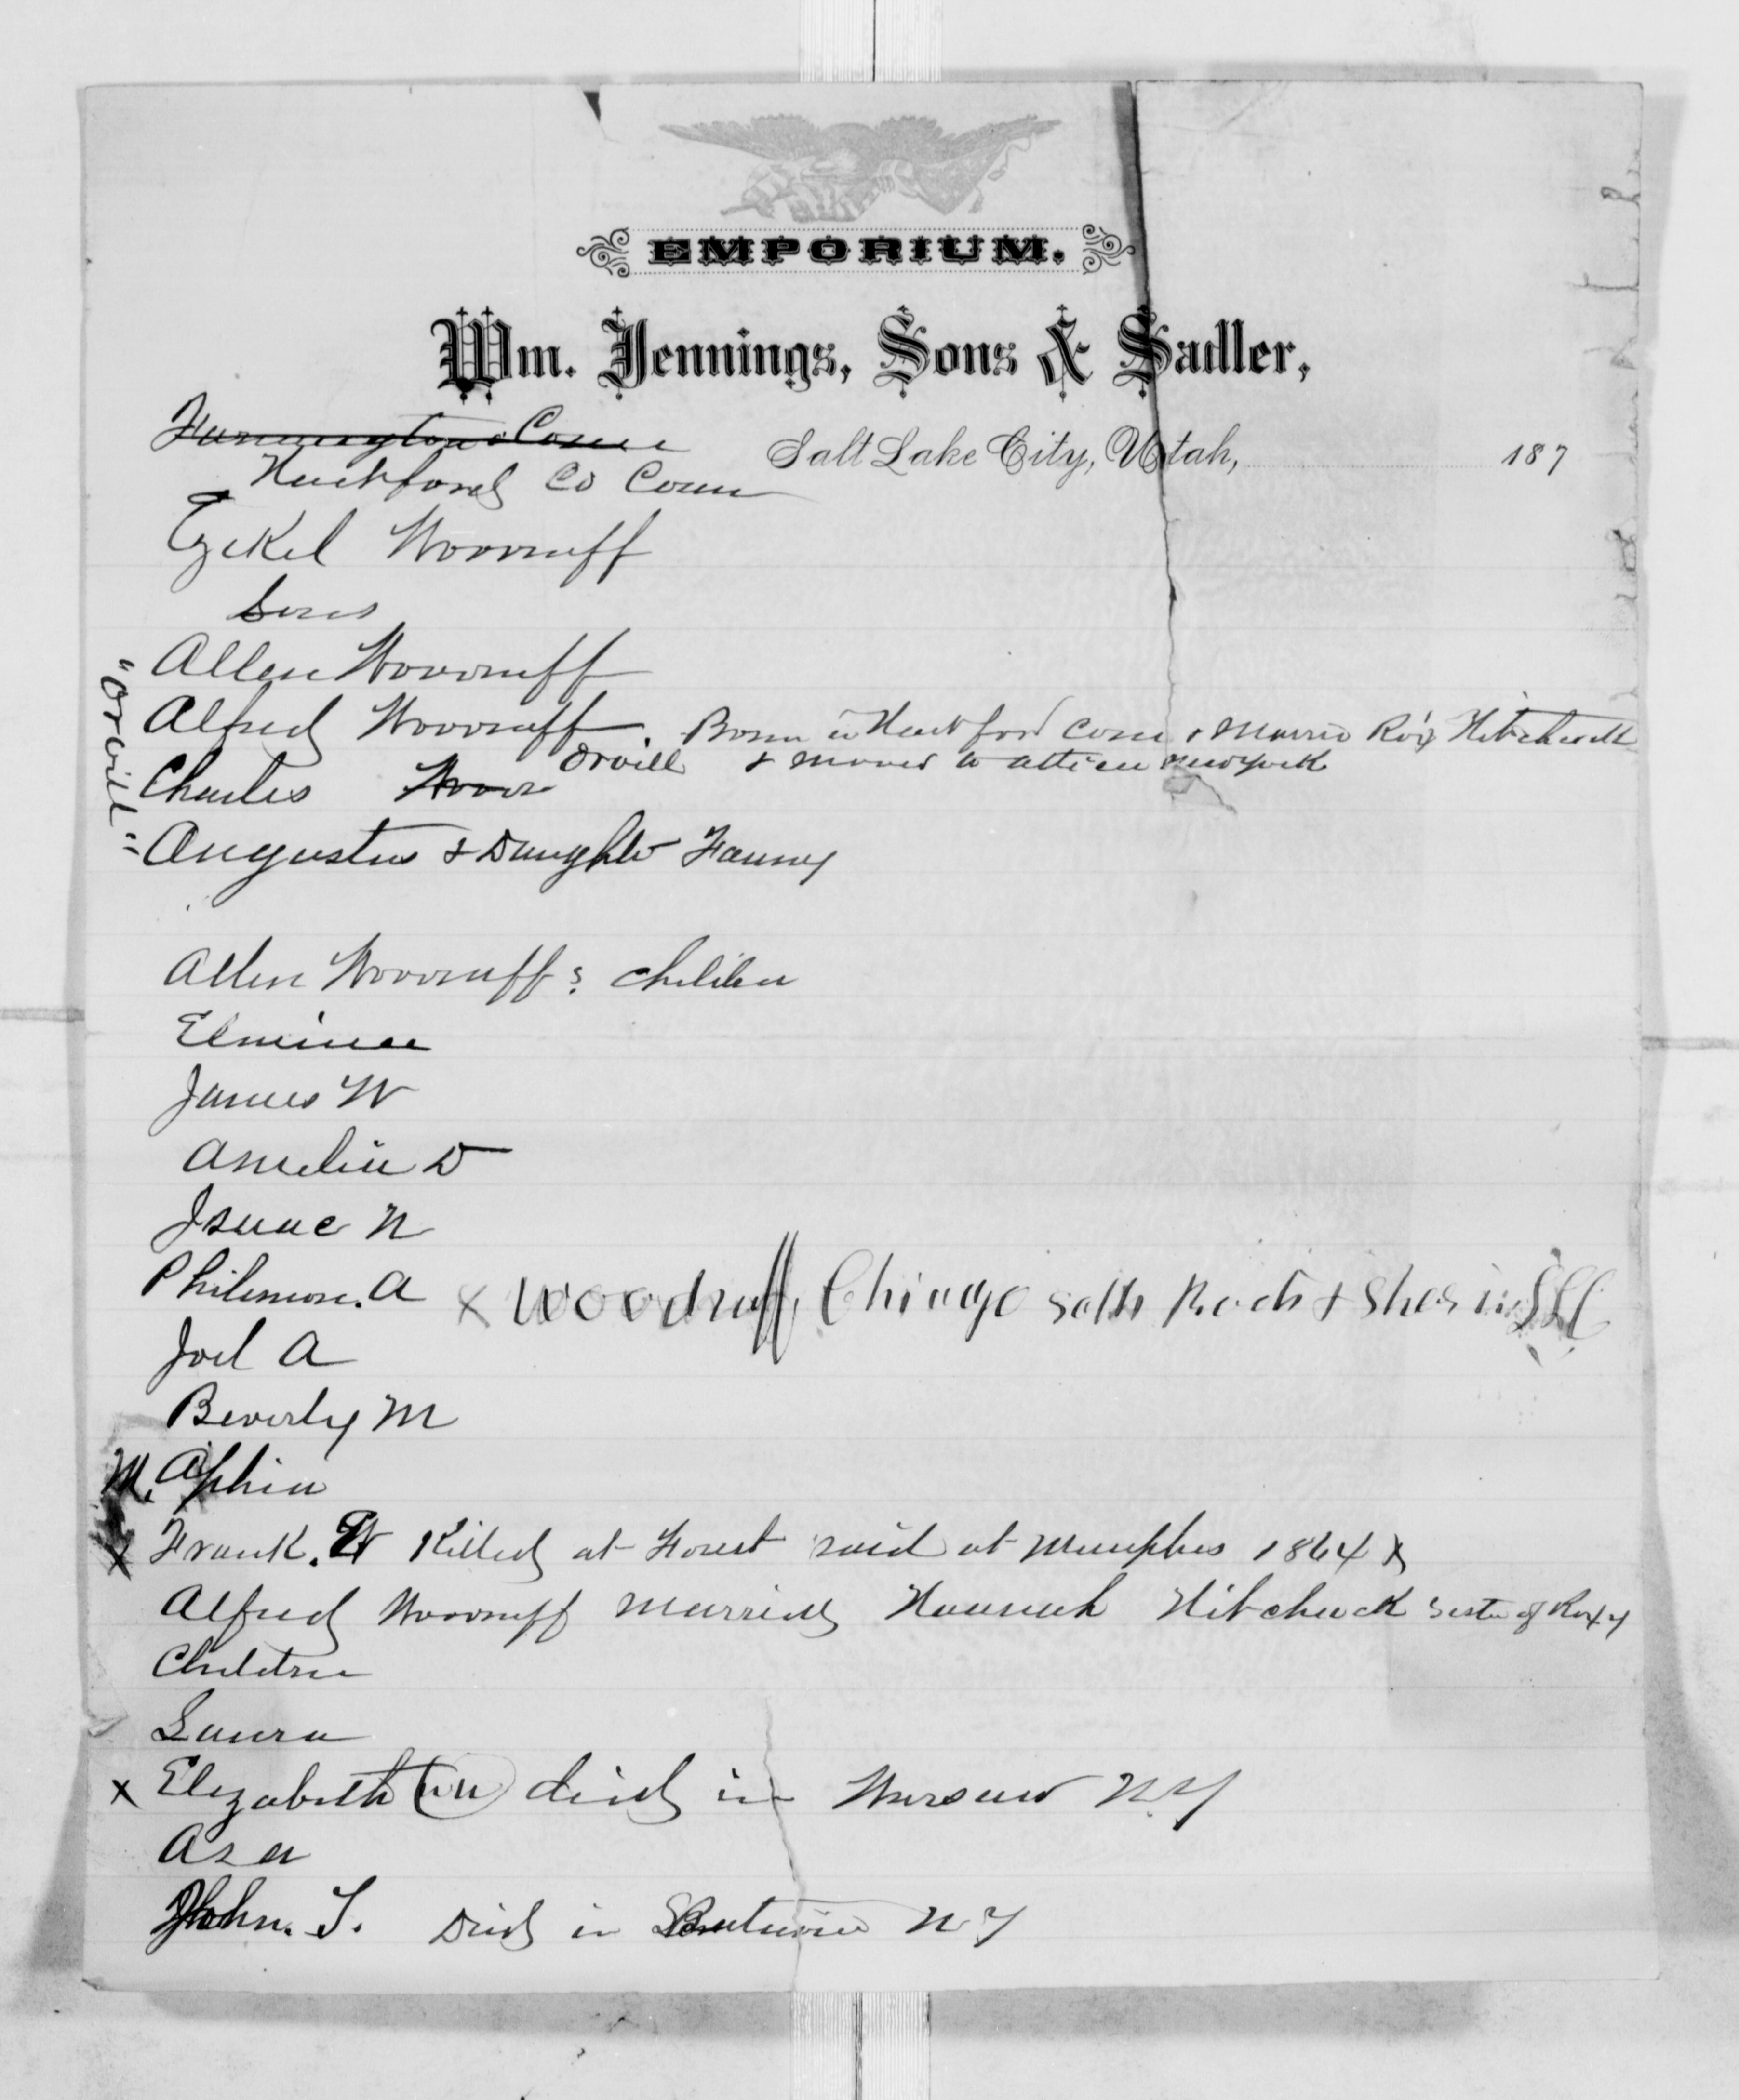 EMPORIUM.
Wm. Jennings, Sons & Sadler,
Farmington Conn
Salt Lake City, Utah, 187
Hartford Co Conn
Ezekel Woodruff
Sons
Allen Woodruff
"Orvill"
Alfred Woodruff. Born in Hartford Conn & Married Roxy Hitchcock
Orvill & moved to Attica New York
Charles Wood
Augustus & Daughter Fanny
Allen Woodruffs children
Elminee
James W
Amelia D
Isaac N
Philemon. A x Woodruff, Chicago sells Boots & Shoes in SLC
Joel A
Beverly M
M. Aphia
x Frank. W Killed at Forest raid at Memphis 1864 x
Alfred Woodruff married Hannah Hitchcock sister of Roxy
Children
Laura
x Elizabeth died in Warsaw N.Y
Asa
John. J. Died in N.Y